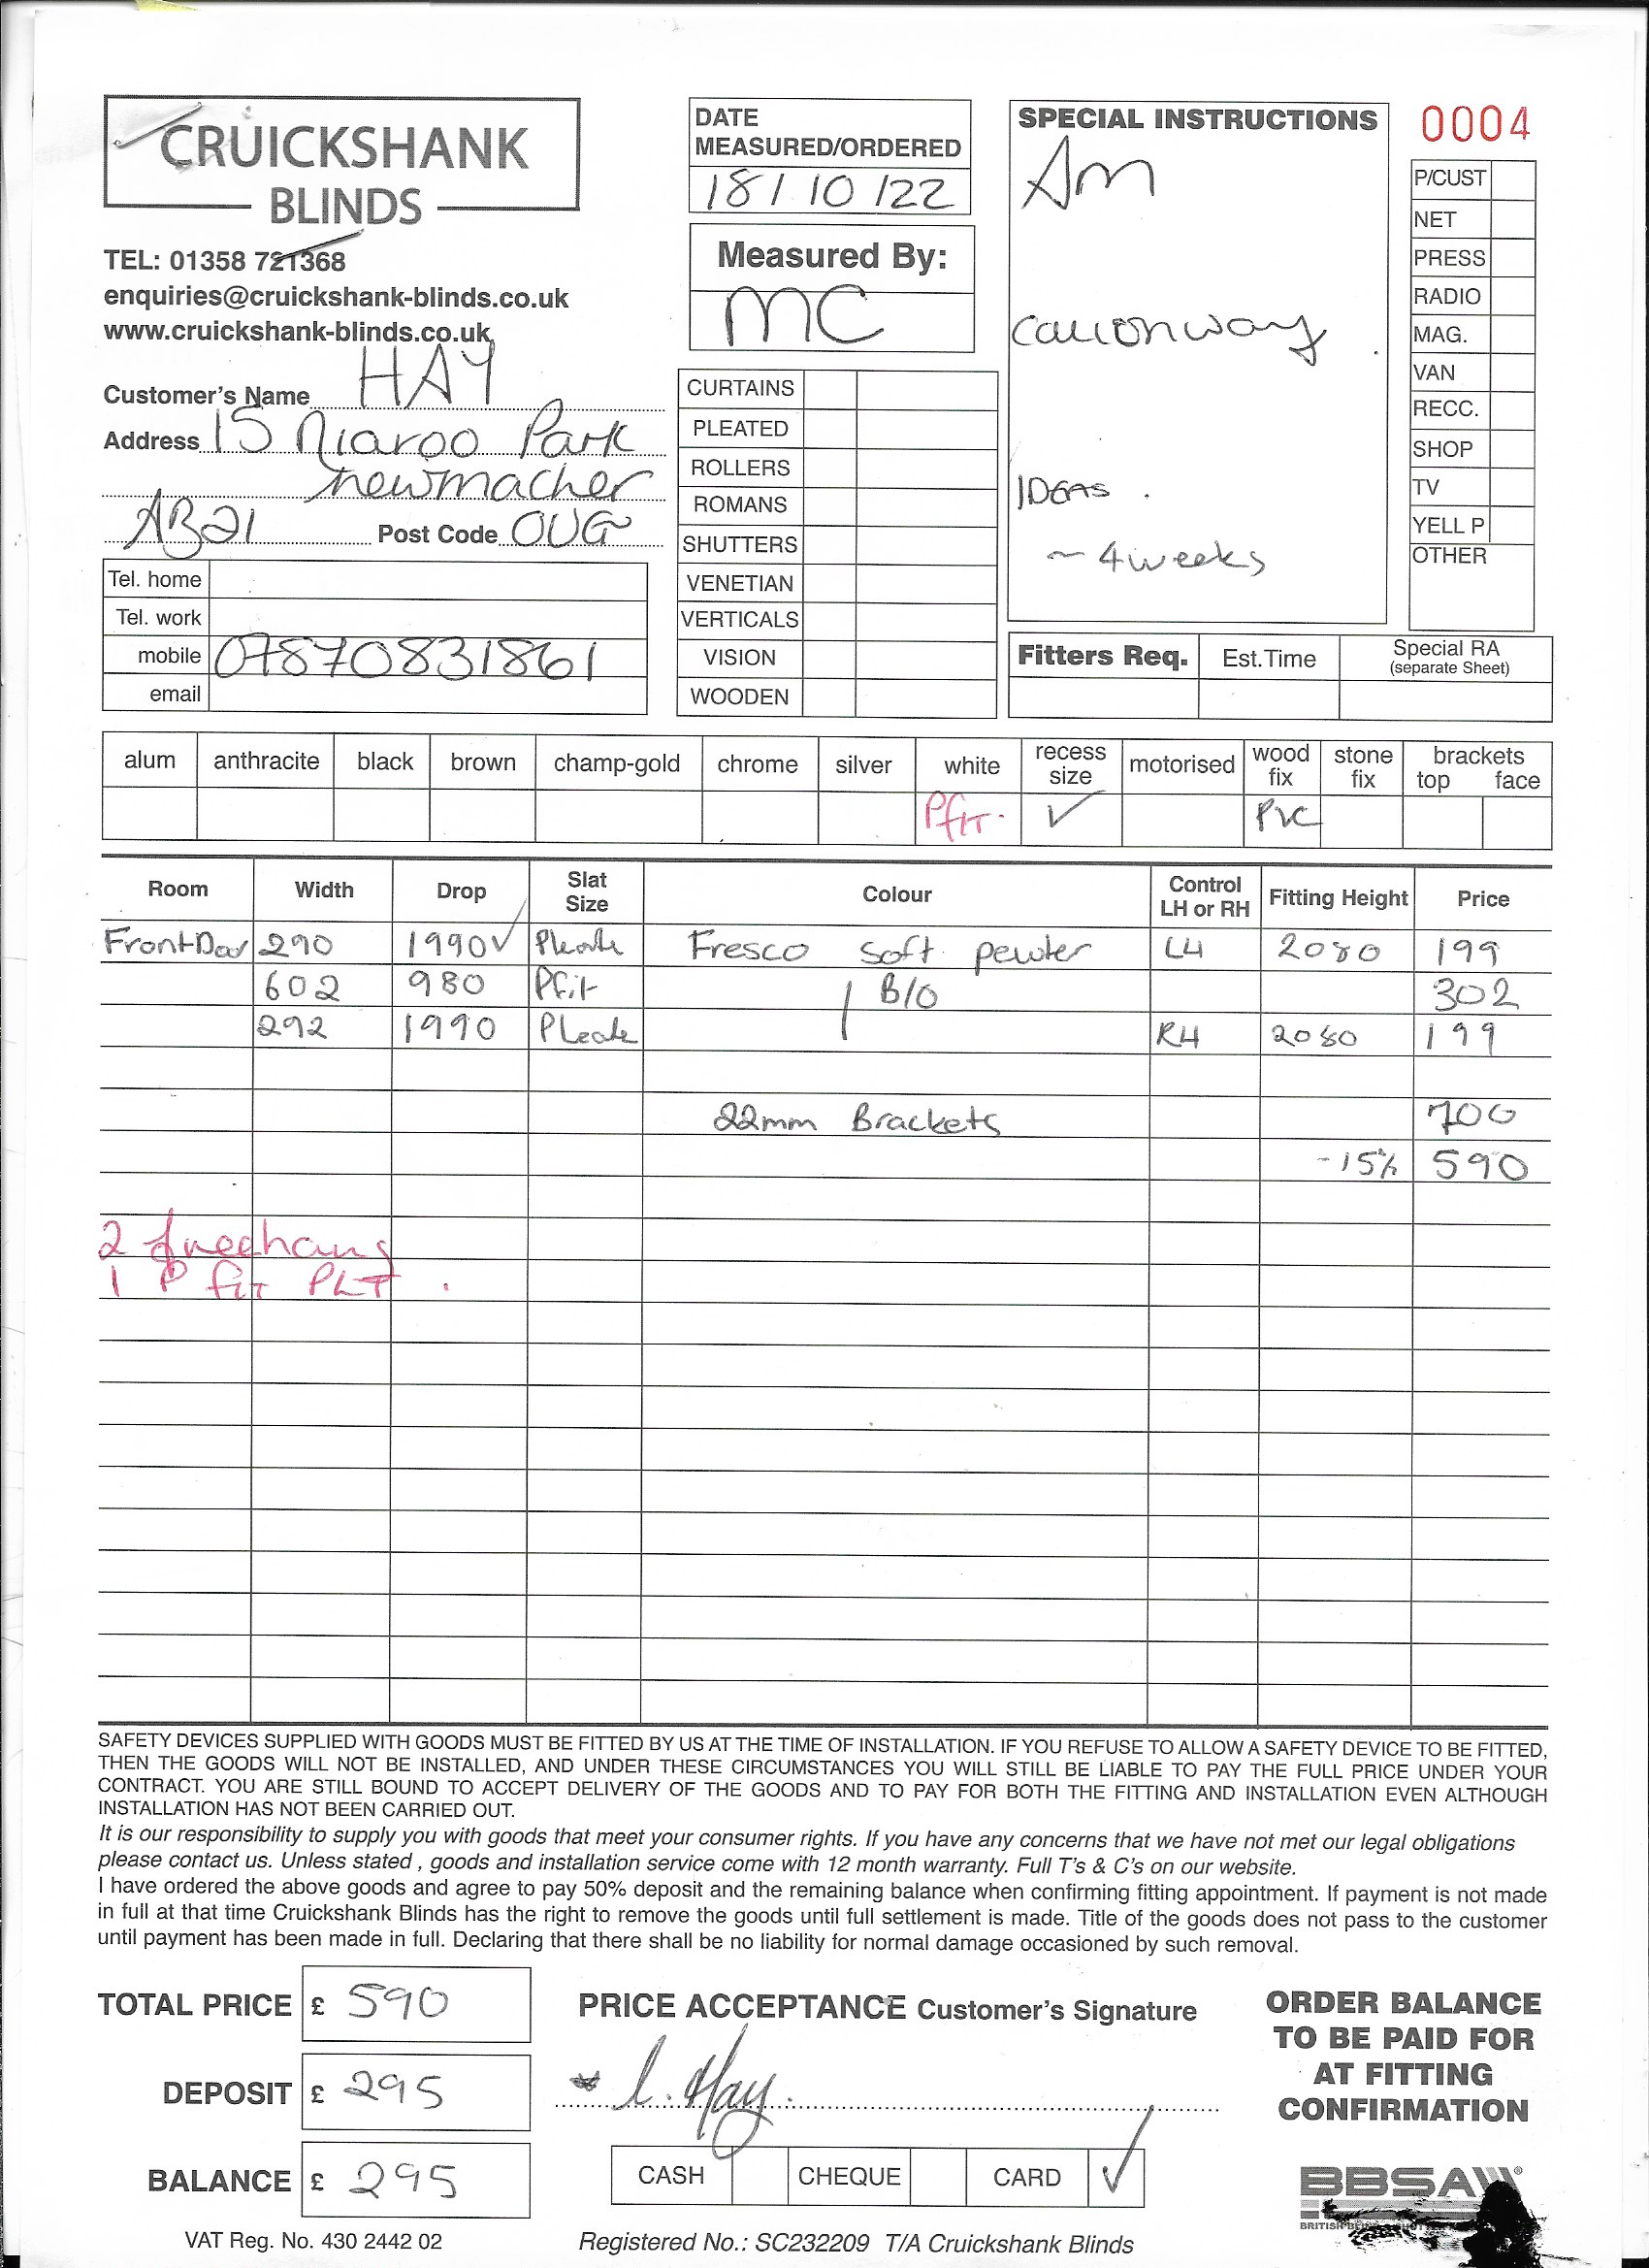 CRUICKSHANK
BLINDS
TEL: 01358 721368
enquiries@cruickshank-blinds.co.uk
www.cruickshank-blinds.co.uk
Customer's Name HAY
Address 15 Park
newmacher
AB21 Post Code 0UG
Tel. home
Tel. work
mobile 07870831861
email
DATE
MEASURED/ORDERED
18/10/22
Measured By:
MC
CURTAINS
PLEATED
ROLLERS
ROMANS
SHUTTERS
VENETIAN
VERTICALS
VISION
WOODEN
SPECIAL INSTRUCTIONS
Am
IDEAS.
~ 4 weeks
0004
P/CUST
NET
PRESS
RADIO
MAG.
VAN
RECC.
SHOP
TV
YELL P
OTHER
Fitters Req. Est.Time Special RA
(separate Sheet)
alum anthracite black brown champ-gold chrome silver white recess size motorised wood fix stone fix brackets top face
Pfit. ✓ PVC
Room Width Drop Slat Size Colour Control LH or RH Fitting Height Price
Front Door 290 1990 ✓ Pleate Fresco soft pewter LH 2080 199
602 980 Pfit B/O 302
292 1990 Pleate RH 2080 199
22mm Brackets 700
-15% 590
2 freehang
1 P fit PLT.
SAFETY DEVICES SUPPLIED WITH GOODS MUST BE FITTED BY US AT THE TIME OF INSTALLATION. IF YOU REFUSE TO ALLOW A SAFETY DEVICE TO BE FITTED,
THEN THE GOODS WILL NOT BE INSTALLED, AND UNDER THESE CIRCUMSTANCES YOU WILL STILL BE LIABLE TO PAY THE FULL PRICE UNDER YOUR
CONTRACT. YOU ARE STILL BOUND TO ACCEPT DELIVERY OF THE GOODS AND TO PAY FOR BOTH THE FITTING AND INSTALLATION EVEN ALTHOUGH
INSTALLATION HAS NOT BEEN CARRIED OUT.
It is our responsibility to supply you with goods that meet your consumer rights. If you have any concerns that we have not met our legal obligations
please contact us. Unless stated , goods and installation service come with 12 month warranty. Full T's & C's on our website.
I have ordered the above goods and agree to pay 50% deposit and the remaining balance when confirming fitting appointment. If payment is not made
in full at that time Cruickshank Blinds has the right to remove the goods until full settlement is made. Title of the goods does not pass to the customer
until payment has been made in full. Declaring that there shall be no liability for normal damage occasioned by such removal.
TOTAL PRICE £ 590
DEPOSIT £ 295
BALANCE £ 295
PRICE ACCEPTANCE Customer's Signature
* l. Hay.
CASH CHEQUE CARD ✓
ORDER BALANCE
TO BE PAID FOR
AT FITTING
CONFIRMATION
BBSA
VAT Reg. No. 430 2442 02
Registered No.: SC232209 T/A Cruickshank Blinds